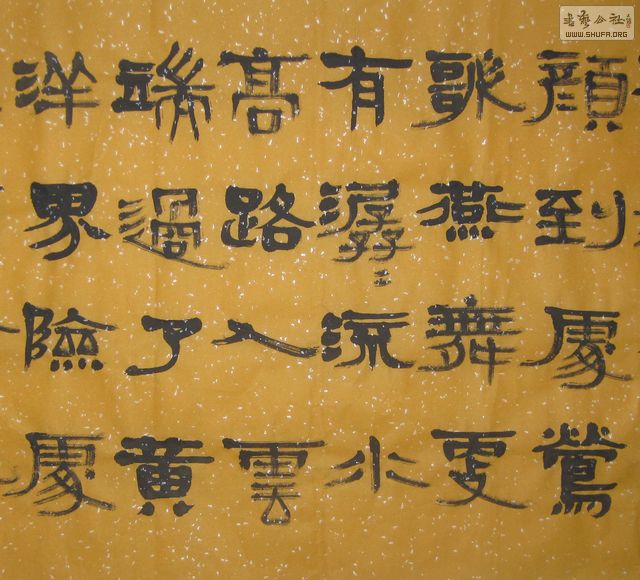 顔到處鶯
歌燕舞更
有潺々流水
高路入雲
端過了黄
洋界險處
書藝公社
WWW.SHUFA.ORG